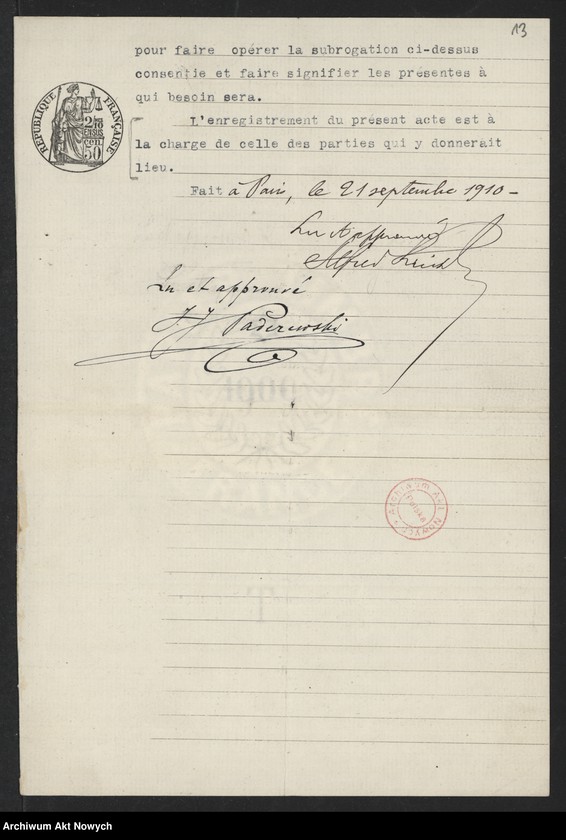 13
pour faire opérer la subrogation ci-dessus
consentie et faire signifier les présentes à
qui besoin sera.
L'enregistrement du présent acte est à
la charge de celle des parties qui y donnerait
lieu.
Fait à Paris, le 21 septembre 1910 -
Lu et approuvé
Alfred
Lu et approuvé
J. J. Paderewski
RÉPUBLIQUE FRANÇAISE
50
Archiwum Akt Nowych
Archiwum Akt Nowych